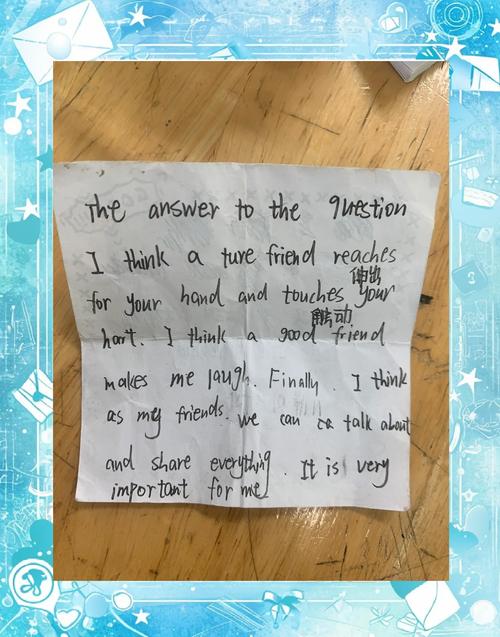 the answer to the question
I think a ture friend reaches
伸出
for your hand and touches your
触动
hart. I think a good friend
makes me laugh. Finally. I think
as my friends. we can talk about
and share everything. It is very
important for me